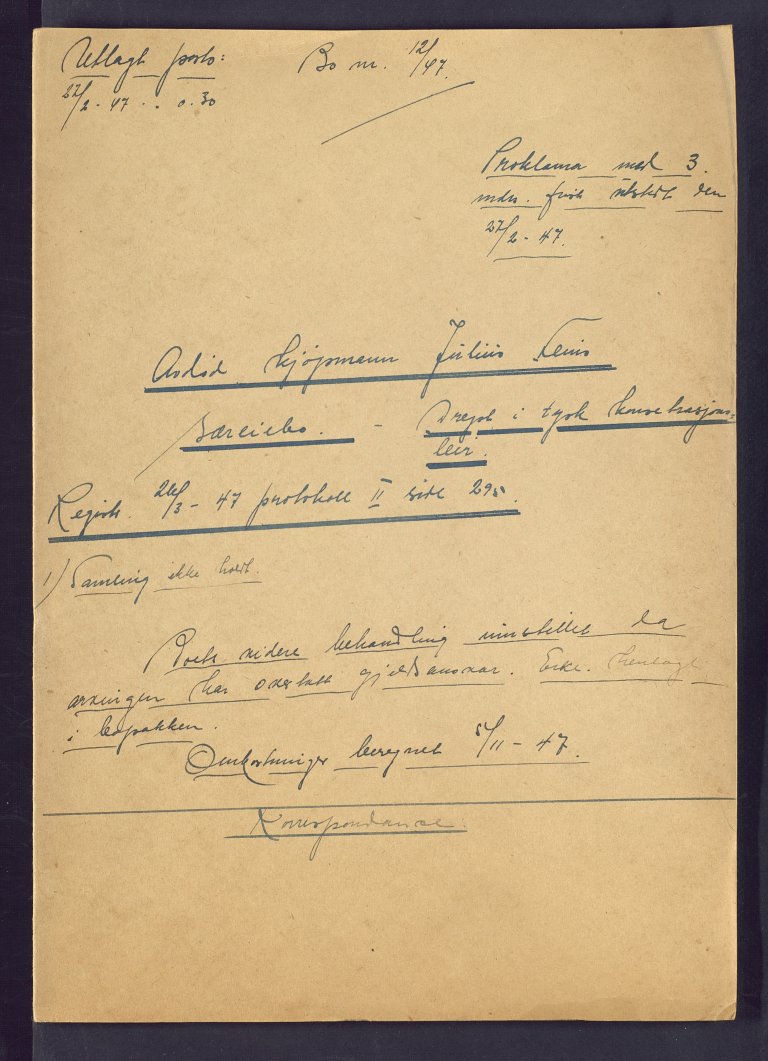 Utlagt porto:
Bo nr. 12/47.
27/2 - 47 .. 0.30
Proklama med 3
mdrs. frist utstedt den
27/2 - 47.
Avdød kjøpmann Julius Feins
Særeiebo. - Drept i tysk konsetrasjons=
leir.
Registr. 26/3 - 47 protokoll II side 295.
1) Samling ikke holdt.
Boets videre behandling innstillet da
arvingen har overtatt gjeldsansvar. Erkl. henlagt
i bopakken.
Omkostninger beregnet 5/11 - 47.
Korrespondance.